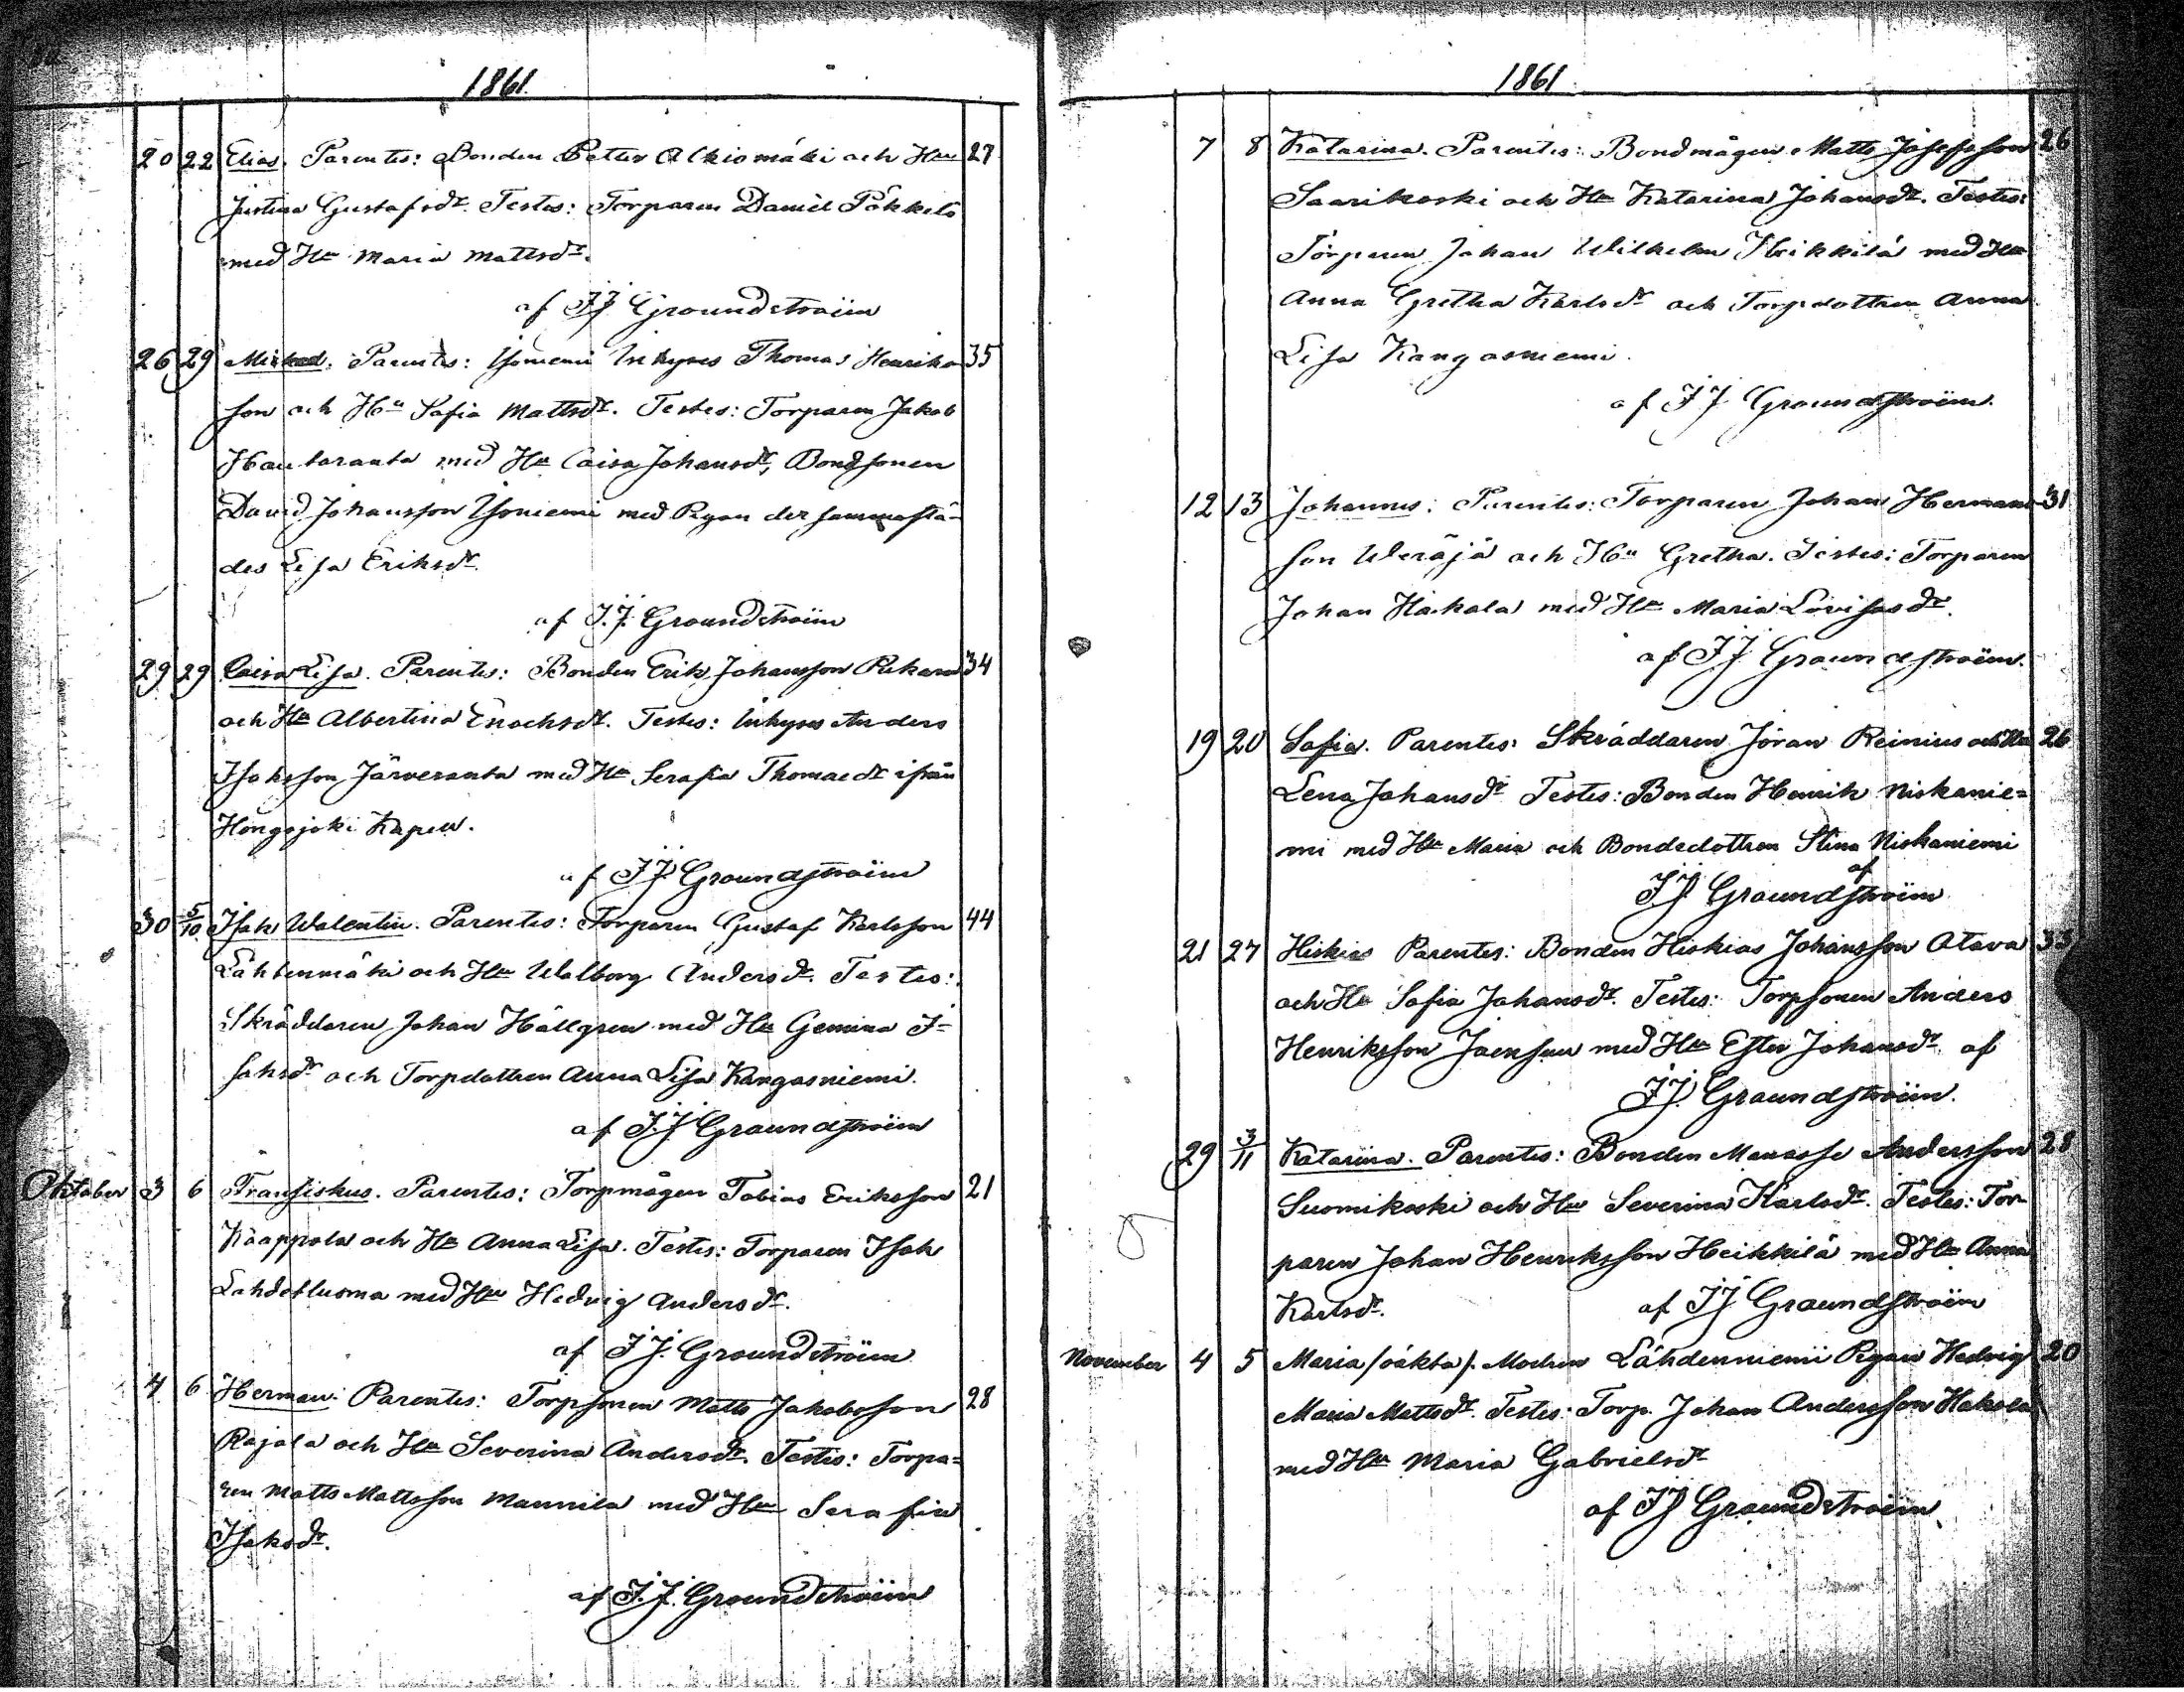 1861
20 22 Elias. Parentes: Bonden Petter Alkiomäki och Hu 27
Justina Gustafsdr. Testes: Torparen Daniel Pökkelö
med Hu Maria Mattsdr.
af J J Groundstroëm
26 29 Mickael. Parentes: Isoniemi Inhyses Thomas Henriks 35
son och Hu Sofia Mattsdr. Testes: Torparen Jakob
Hautaranta med Hu Caisa Johansdr, Bondsonen
David Johansson Isoniemi med Pigan der sammastä-
des Lisa Eriksdr.
af J.J. Groundstroëm
29 29 Caisa Lisa. Parentes: Bonden Erik Johansson 34
och Hu Albertina Enochsdr. Testes: Inhyses Anders
Isaksson Järveranta med Hu Serafia Thomasdr ifrån
Hongojoki Kapell.
af J J Groundstroëm
30 5/10 Isak Walentin. Parentes: Torparen Gustaf Karlsson 44
Lähtenmäki och Hu Walborg Andersdr. Testes:
Skräddaren Johan Hällgren med Hu Gemina I-
saksdr och Torpdottren Anna Lisa Kangasniemi.
af J.J Groundstroëm
Oktober 3 6 Fransiskus. Parentes: Torpmågen Tobias Eriksson 21
Kaappola och Hu Anna Lisa. Testes: Torparen Isak
Lahdetluoma med Hu Hedvig Andersdr.
af J.J. Groundstroëm
4 6 Herman. Parentes: Torpsonen Matts Jakobsson 28
Rajala och Hu Severina Andersdr. Testes: Torpa-
ren Matts Mattsson Mannila med Hu Serafia
Isaksdr.
af J.J. Groundstroëm
1861
7 8 Katarina. Parentes: Bondmågen Matts Josefsson 26
Saarikoski och Hu Katarina Johansdr. Testes:
Torparen Johan Wilhelm Heikkilä med Hu
Anna Gretha Karlsdr och Torpdottren Anna
Lisa Kangasniemi.
af J J Groundstroëm.
12 13 Johannes. Parentes: Torparen Johan Hermans- 31
son Weräjä och Hu Gretha. Testes: Torparen
Johan Hakala med Hu Maria Lovisasdr.
af J J Groundstroëm.
19 20 Sofia. Parentes: Skräddaren Jöran Reinius och Hu 26
Lena Johansdr Testes: Bonden Henrik Niskanie-
mi med Hu Maria och Bondedottren Stina Niskaniemi
af
J J Groundstroëm
21 27 Hiskias Parentes: Bonden Hiskias Johansson Atava 33
och Hu Sofia Johansdr. Testes: Torpsonen Anders
Henriksson Jaensuu med Hu Ester Johansdr. af
J J. Groundstroëm.
29 3/11 Katarina. Parentes: Bonden Manasse Andersson 28
Suomikoski och Hu Severina Karlsdr. Testes: Tor-
paren Johan Henriksson Heikkilä med Hu Anna
Karlsdr. af J J Groundstroëm
November 4 5 Maria /oäkta/. Modren Lähdenniemi Pigan Hedvig 20
Maria Mattsdr. Testes: Torp. Johan Andersson Hakola
med Hu Maria Gabrielsdr
af J J Groundstroëm.